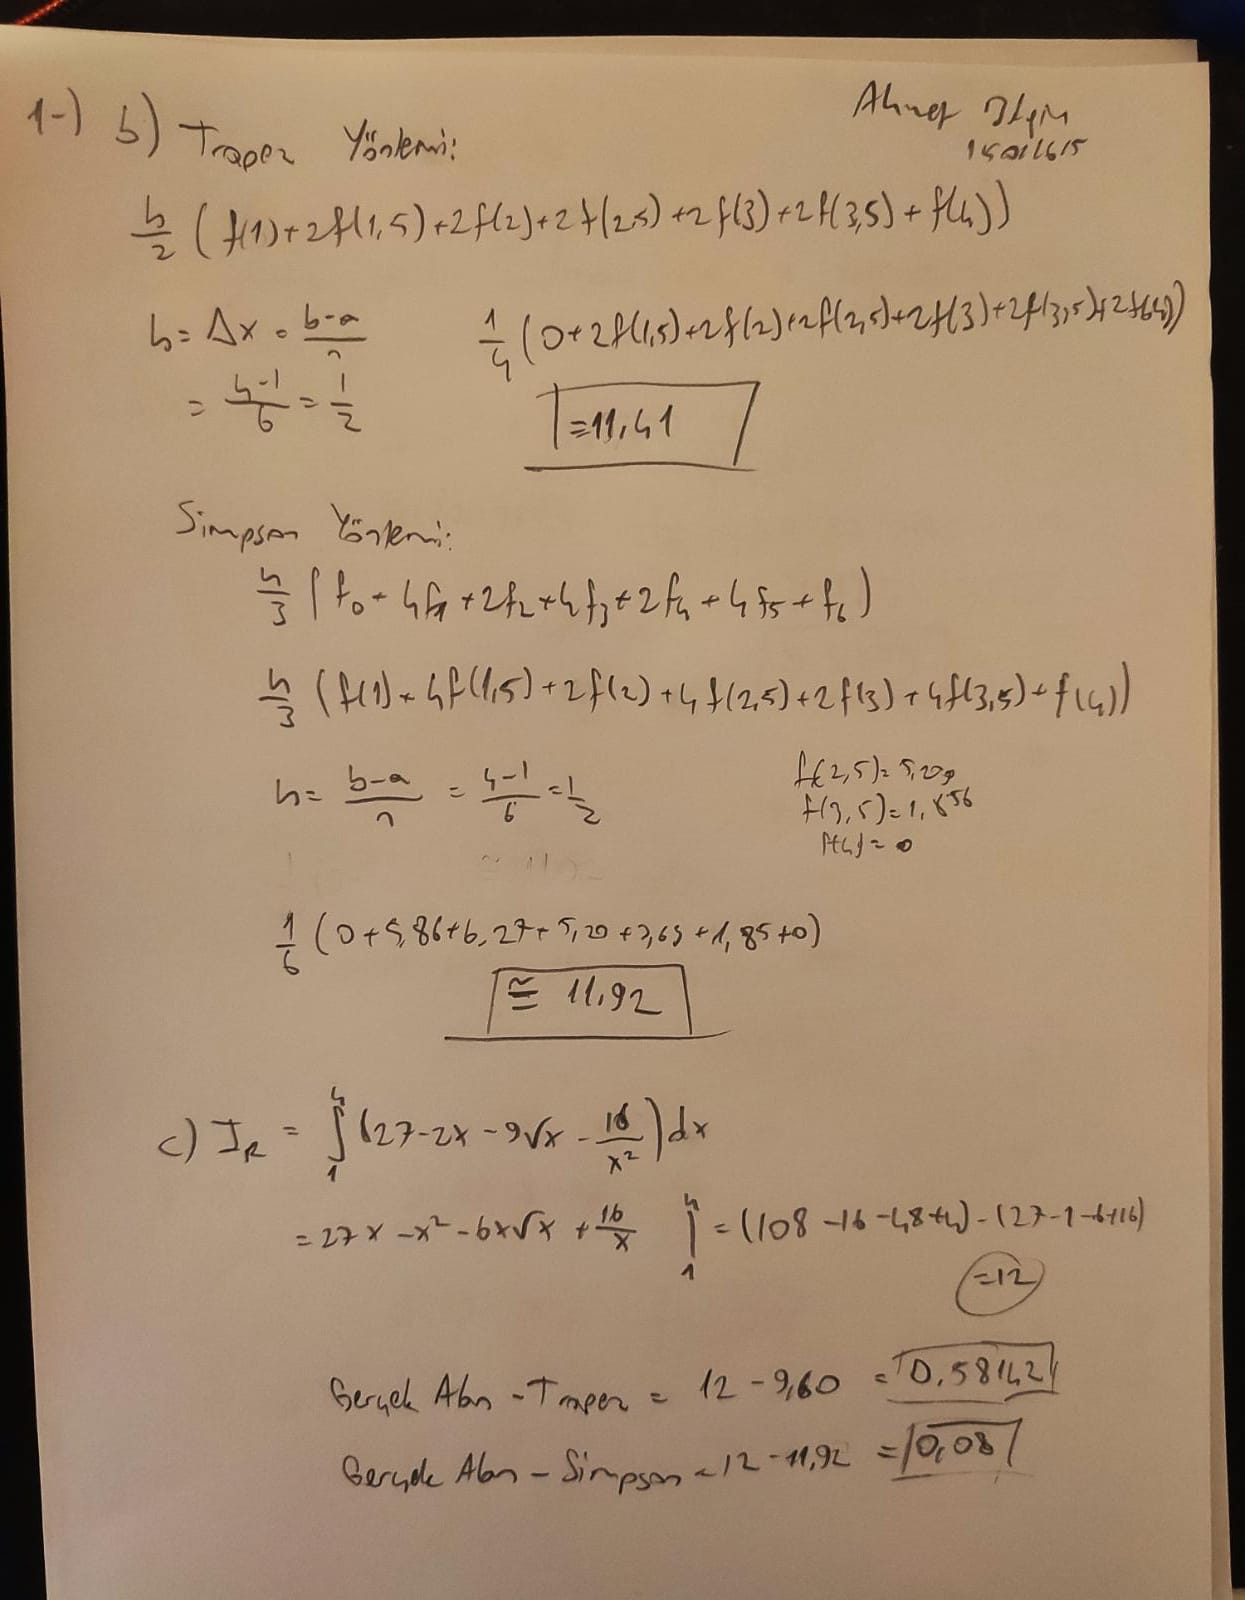 1-) b) Trapez Yöntemi:
Ahmet
h/2 (f(1)+2f(1,5)+2f(2)+2f(2,5)+2f(3)+2f(3,5)+f(4))
h = Δx = b-a/n
= 4-1/6 = 1/2
1/4 (0+2f(1,5)+2f(2)+2f(2,5)+2f(3)+2f(3,5)+2f(4))
=11,41
Simpson Yöntemi:
h/3 (f₀+4f₁+2f₂+4f₃+2f₄+4f₅+f₆)
h/3 (f(1)+4f(1,5)+2f(2)+4f(2,5)+2f(3)+4f(3,5)+f(4))
h = b-a/n = 4-1/6 = 1/2
f(2,5)=5,209
f(3,5)=1,856
f(4)=0
1/6 (0+5,86+6,27+5,20+3,69+1,85+0)
≅ 11,92
c) I_R = ∫₁⁴ (27-2x-9√x - 16/x²) dx
= 27x - x² - 6x√x + 16/x |₁⁴ = (108-16-48+4)-(27-1-6+16)
=12
Gerçek Alan - Trapez = 12 - 9,60 = 0,58142
Gerçek Alan - Simpson = 12 - 11,92 = 0,08